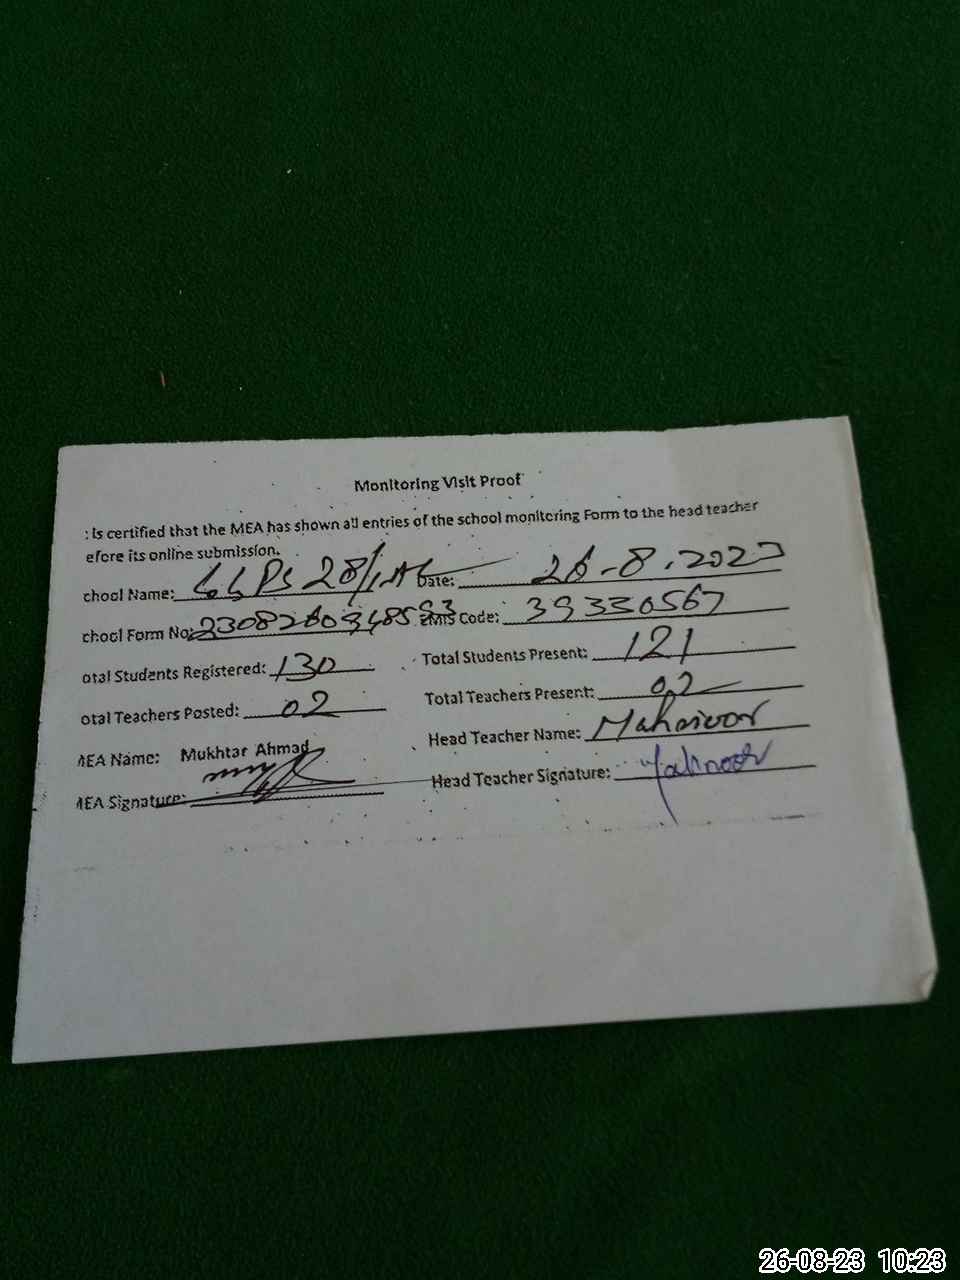 Monitoring Visit Proof
: is certified that the MEA has shown all entries of the school monitoring Form to the head teacher
efore its online submission.
chool Name: GGPS 28/ Date: 26-8-2023
chool Form No: EMIS Code: 39330567
otal Students Registered: 130 Total Students Present: 121
otal Teachers Posted: 02 Total Teachers Present: 02
MEA Name: Mukhtar Ahmad Head Teacher Name: Mahnoor
MEA Signature: Head Teacher Signature: Mahnoor
26-08-23 10:23